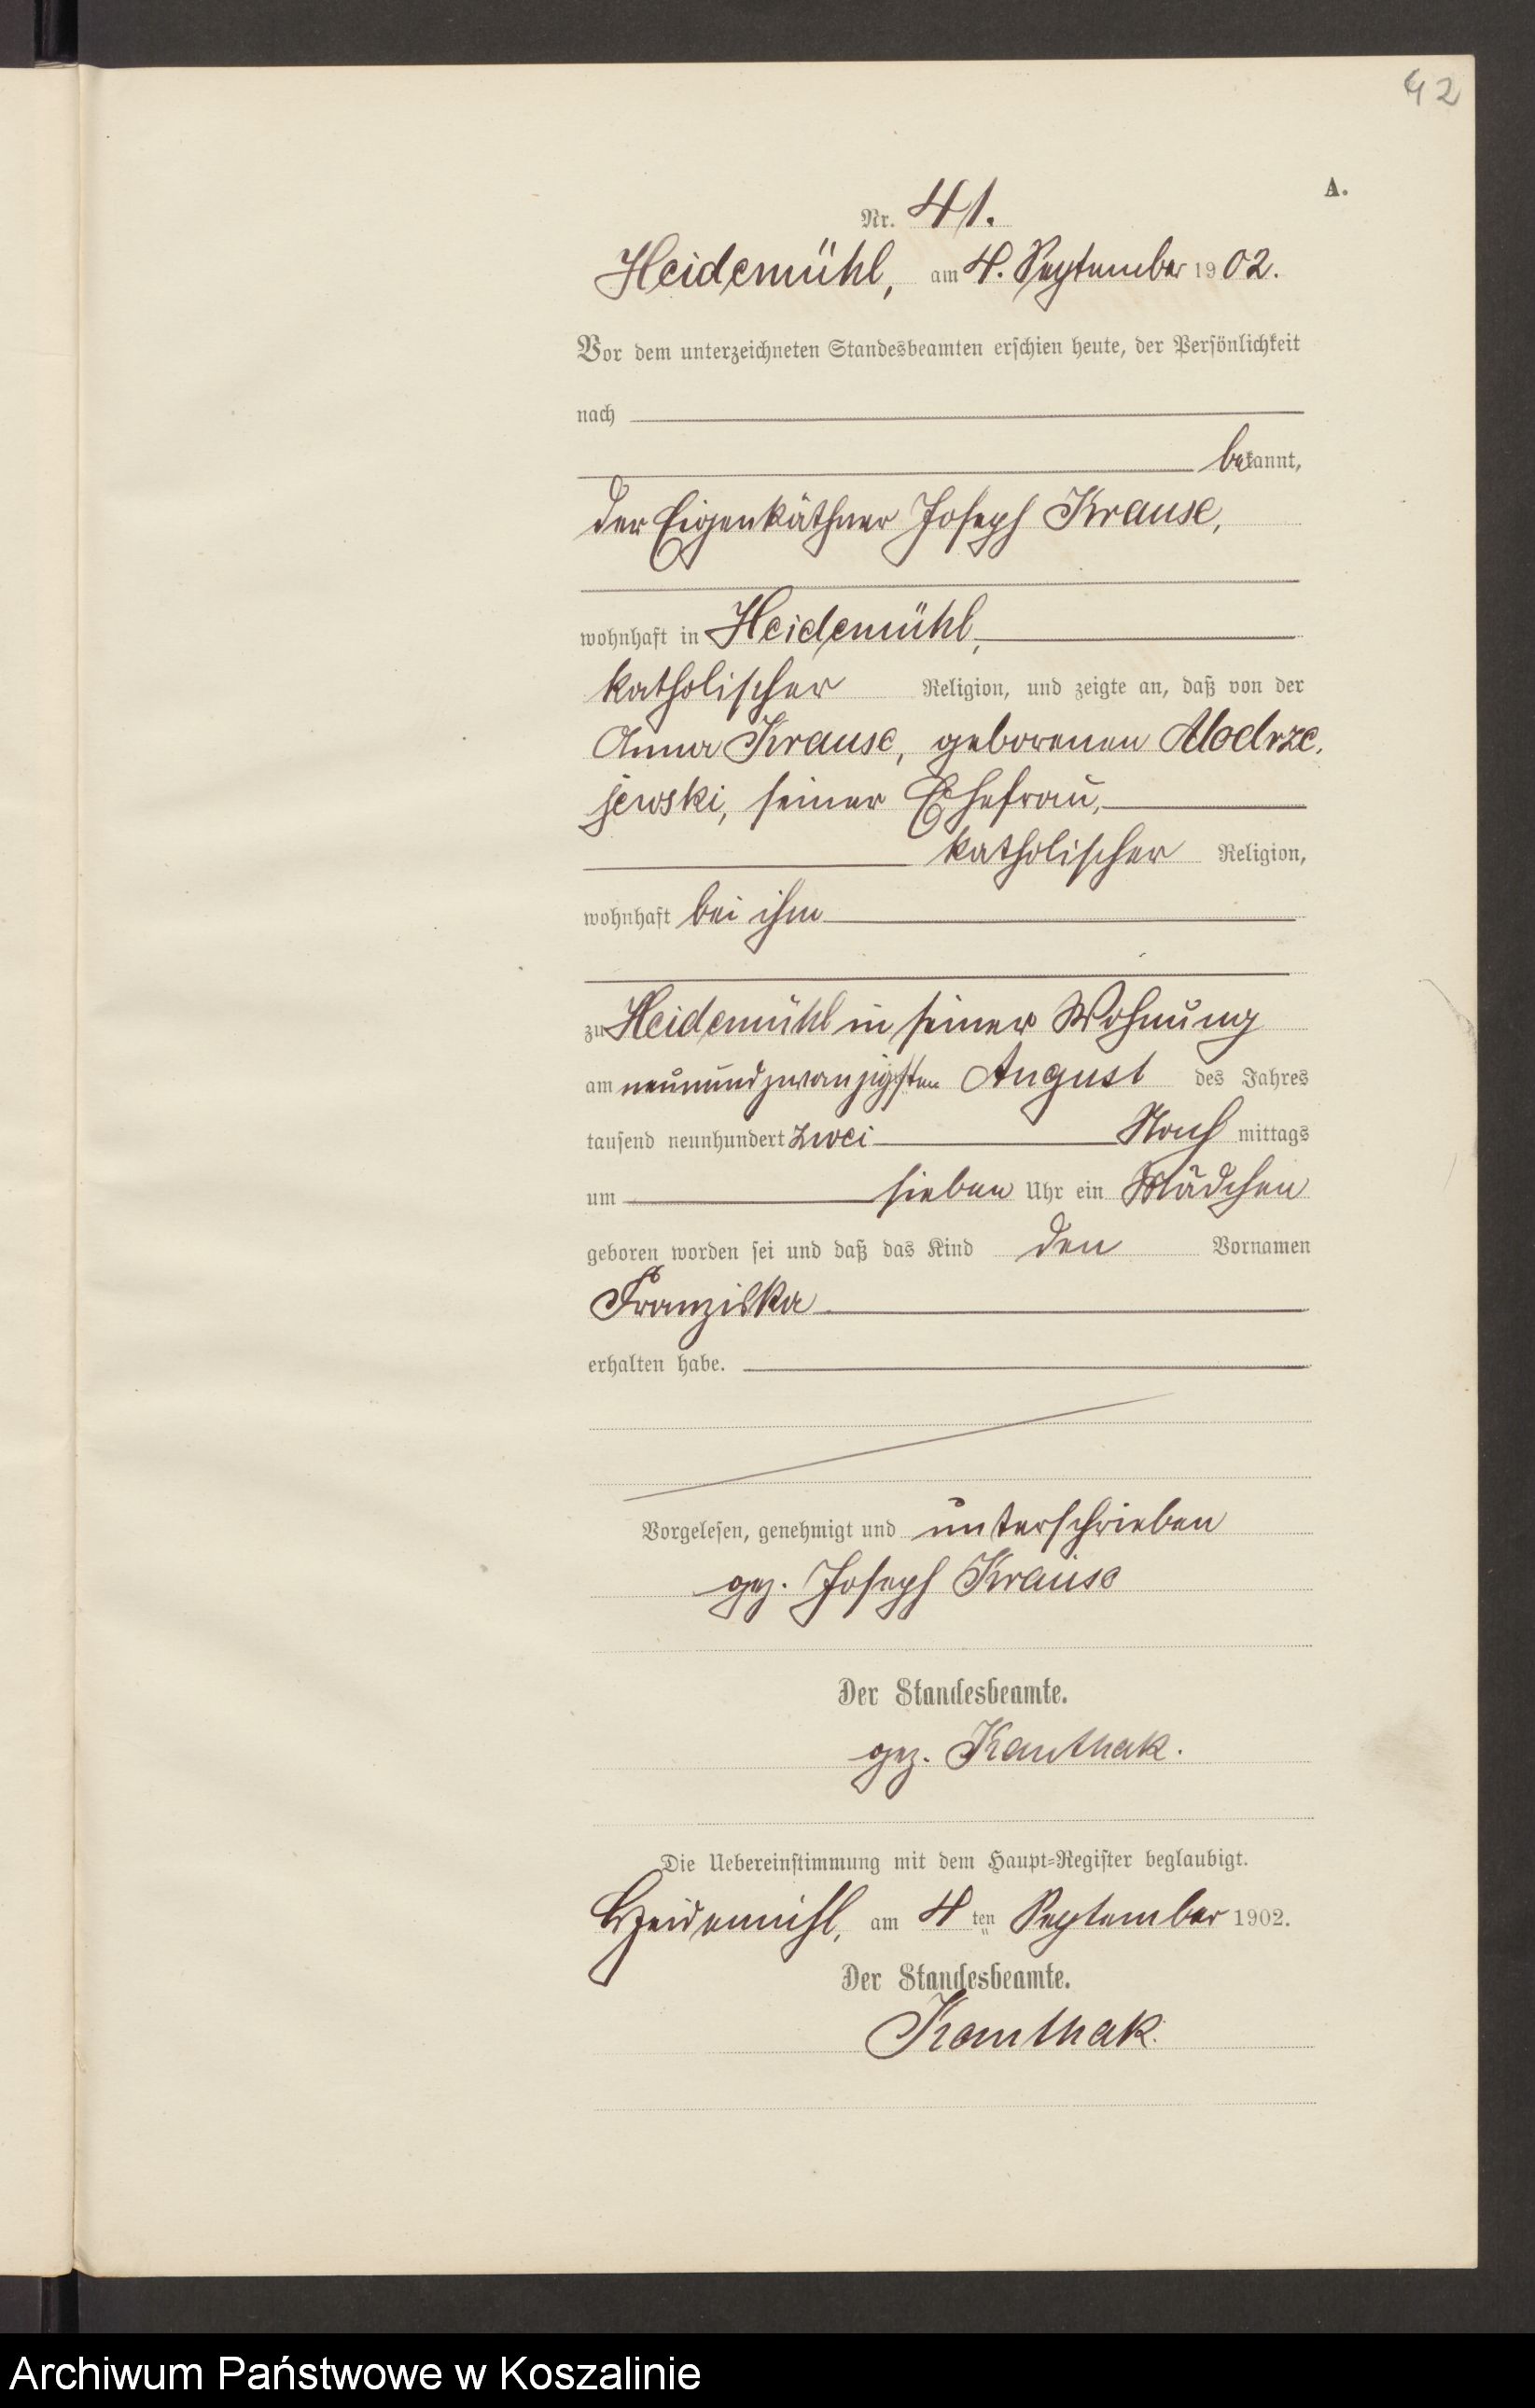 42
A.
Nr. 41.
Heidemühl, am 4. September 1902.
Vor dem unterzeichneten Standesbeamten erschien heute, der Persönlichkeit
nach
bekannt,
der Eigenkäthner Joseph Krause,
wohnhaft in Heidemühl,
katholischer Religion, und zeigte an, daß von der
Anna Krause, geborenen Modrze,
jewski, seiner Ehefrau,
katholischer Religion,
wohnhaft bei ihm
zu Heidemühl in seiner Wohnung
am neunundzwanzigsten August des Jahres
tausend neunhundert zwei Nach mittags
um sieben Uhr ein Mädchen
geboren worden sei und daß das Kind den Vornamen
Franziska
erhalten habe.
Vorgelesen, genehmigt und unterschrieben
gez. Joseph Krause
Der Standesbeamte.
gez. Kanthak.
Die Uebereinstimmung mit dem Haupt=Register beglaubigt.
Heidemühl, am 4ten September 1902.
Der Standesbeamte.
Kanthak.
Archiwum Państwowe w Koszalinie